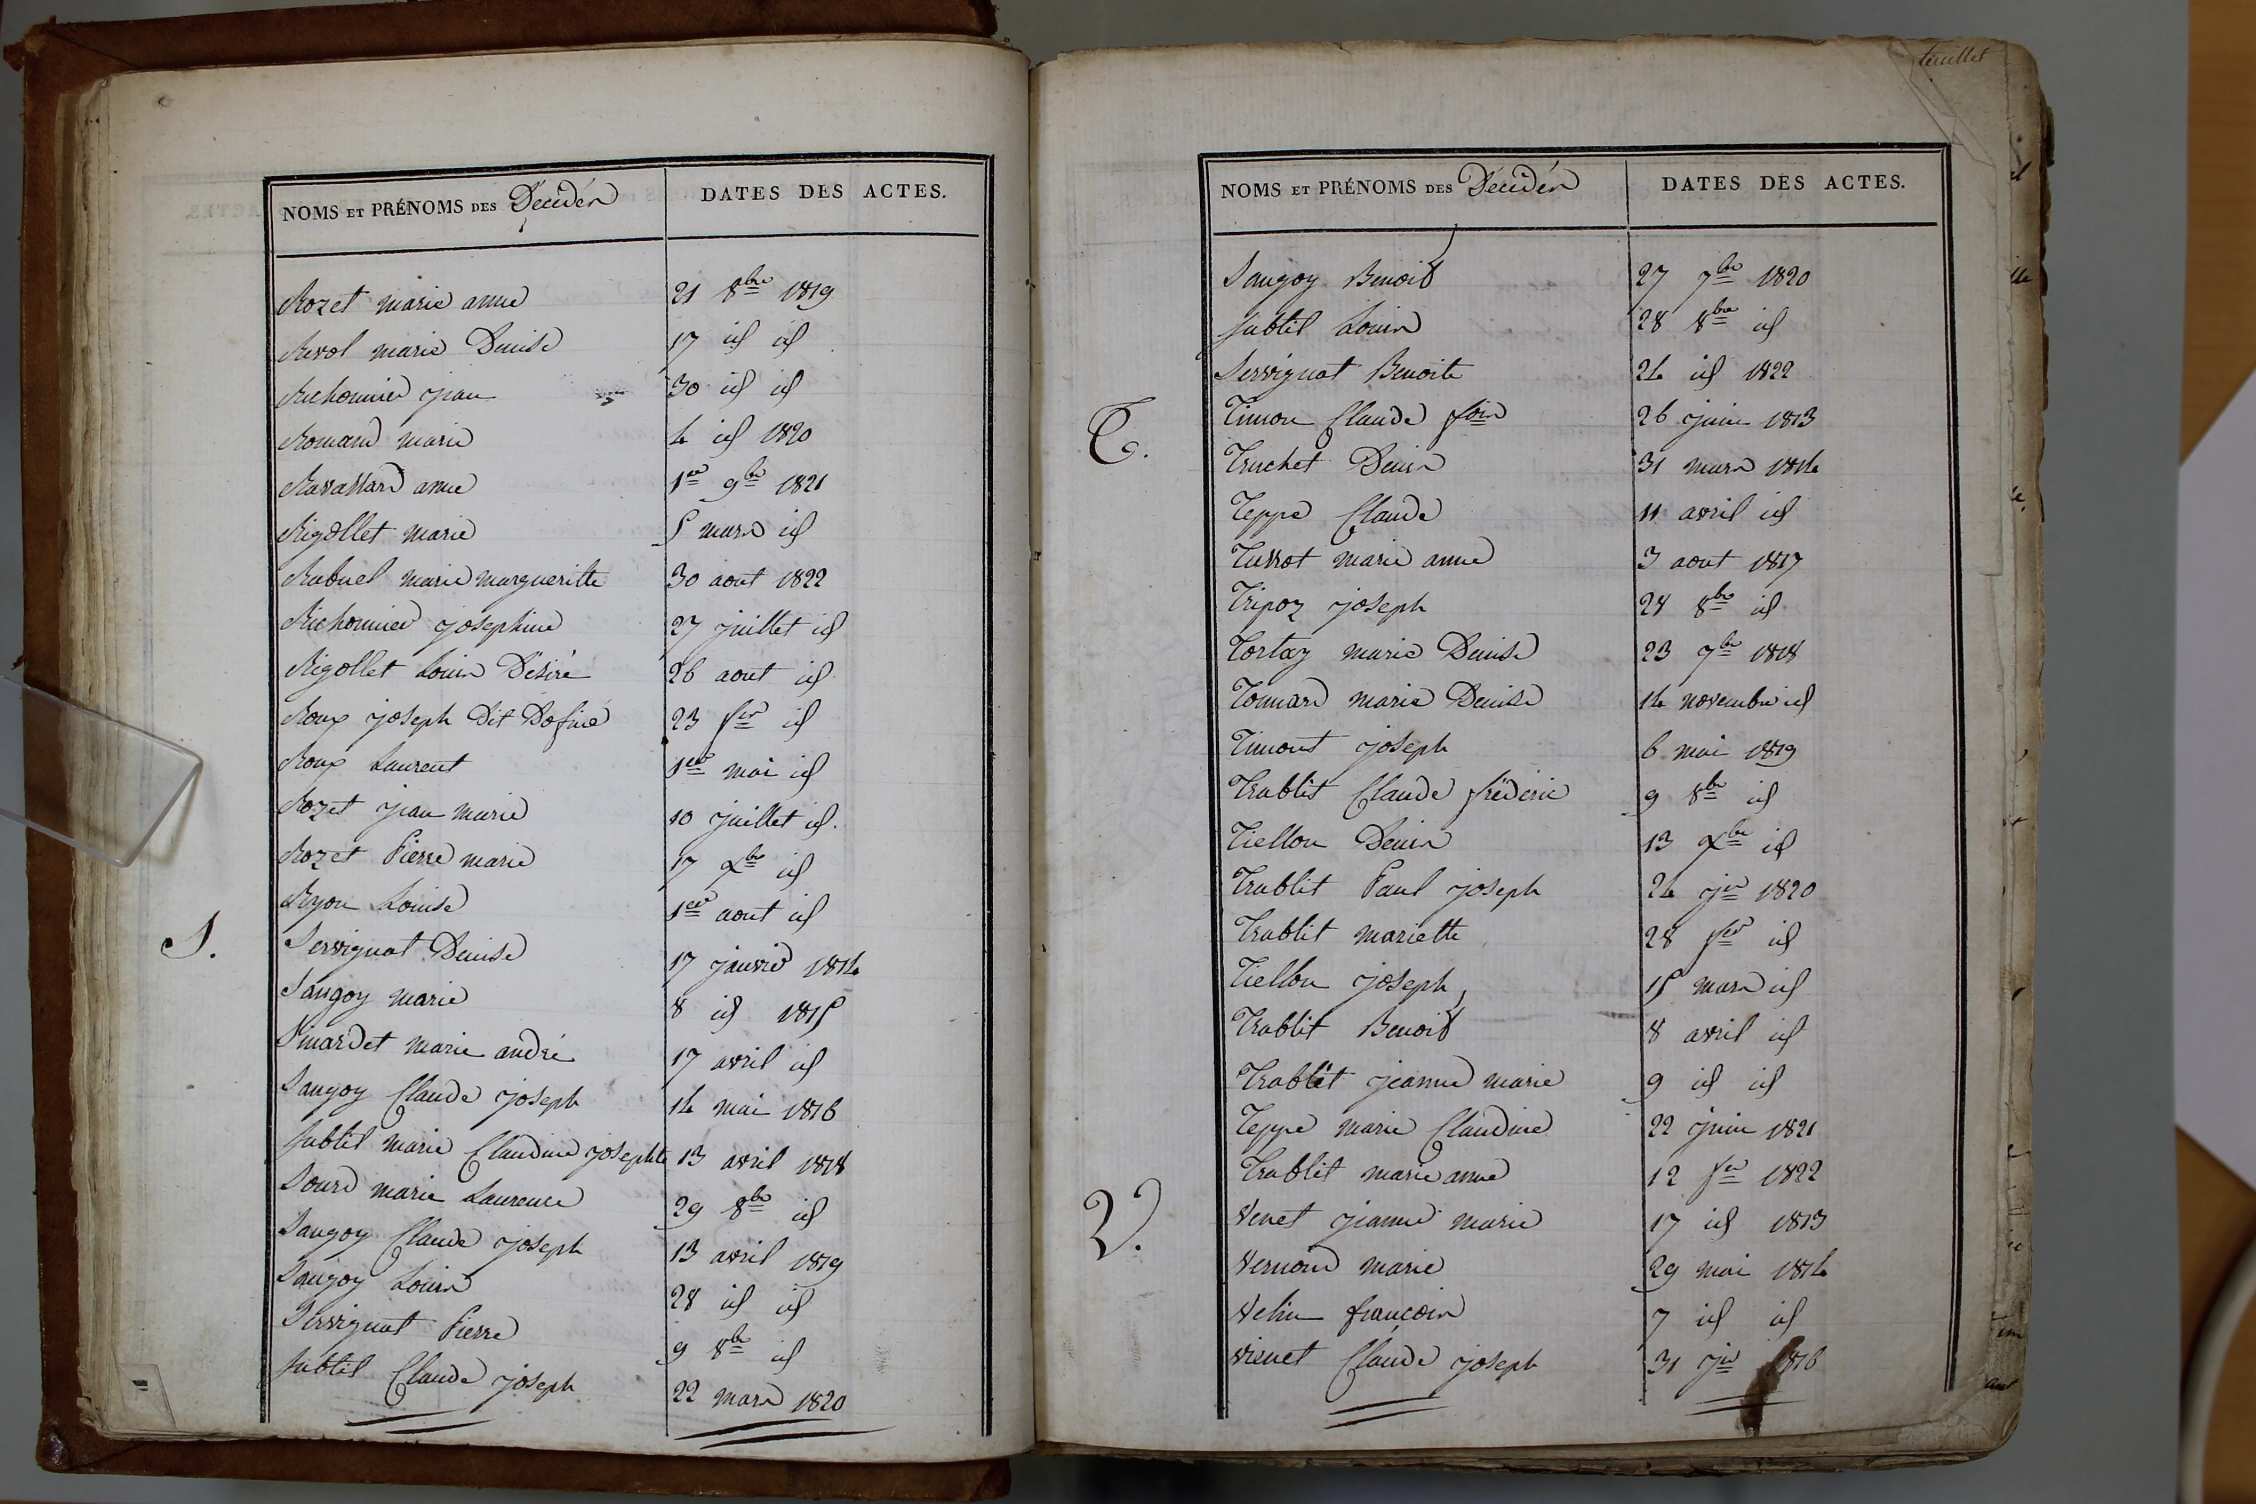 NOMS ET PRÉNOMS DES Décédés
DATES DES ACTES.
Rozet marie anne 21 8bre 1819
Revol marie Denise 17 id id
Richonnier jean 30 id id
Romand marie 4 id 1820
Ravassard anne 1er 9bre 1821
Rigollet marie 5 mars id
Rabuel marie margueritte 30 aout 1822
Richonnier josephine 27 juillet id
Rigollet Louis Désiré 26 aout id
Roux joseph dit Dofiné 23 fer id
Roux Laurent 1er mai id
Rozet jean marie 10 juillet id.
Rozet Pierre marie 17 Xbre id
Ryon Louise 1er aout id
S.
Servignat Denise 17 janvier 1814
Saugoy marie 8 id 1815
Sinardet marie andré 17 avril id
Saugoy Claude joseph 14 mai 1816
Subtil marie Claudine josephte 13 avril 1818
Sourd marie Laurence 29 8bre id
Saugoy Claude joseph 13 avril 1819
Saugoy Louis 28 id id
Servignat Pierre 9 8bre id
Subtil Claude joseph 22 mars 1820
feuillet
NOMS ET PRÉNOMS DES Décédés
DATES DES ACTES.
Saugoy Benoit 27 7bre 1820
Subtil Louis 28 8bre id
Servignat Benoite 24 id 1822
T.
Timon Claude fçois 26 juin 1813
Truchet Denis 31 mars 1814
Teppe Claude 11 avril id
Turrot marie anne 3 aout 1817
Tripoz joseph 28 8bre id
Tortay marie Denise 23 7bre 1818
Tonnard marie Denise 14 novembre id
Timont joseph 6 mai 1819
Trablit Claude fréderic 9 8bre id
Tiellon Denis 13 Xbre id
Trablit Paul joseph 24 jer 1820
Trablit mariette 28 fer id
Tiellon joseph 15 mars id
Trablit Benoit 8 avril id
Trablit jeanne marie 9 id id
Teppe marie Claudine 22 juin 1821
Trablit marie anne 12 fer 1822
V.
Venet jeanne marie 17 id 1813
Vernoud marie 29 mai 1814
Velin françois 7 id id
Vienet Claude joseph 31 jer 1816